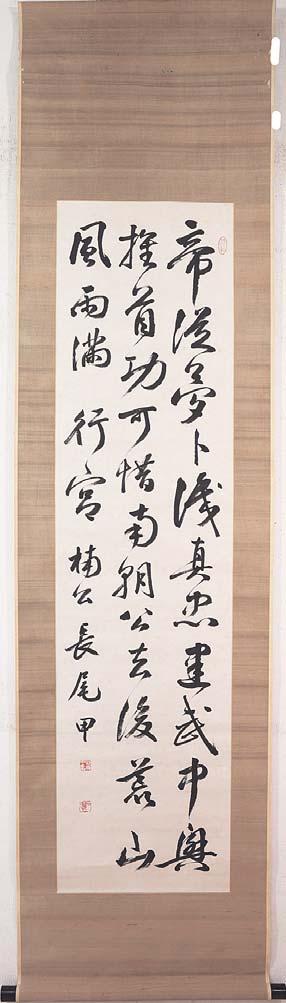 帝從夢卜識真忠建武中興
推首功可惜南朝公去後荒山
風雨滿行宮 楠公 長尾甲